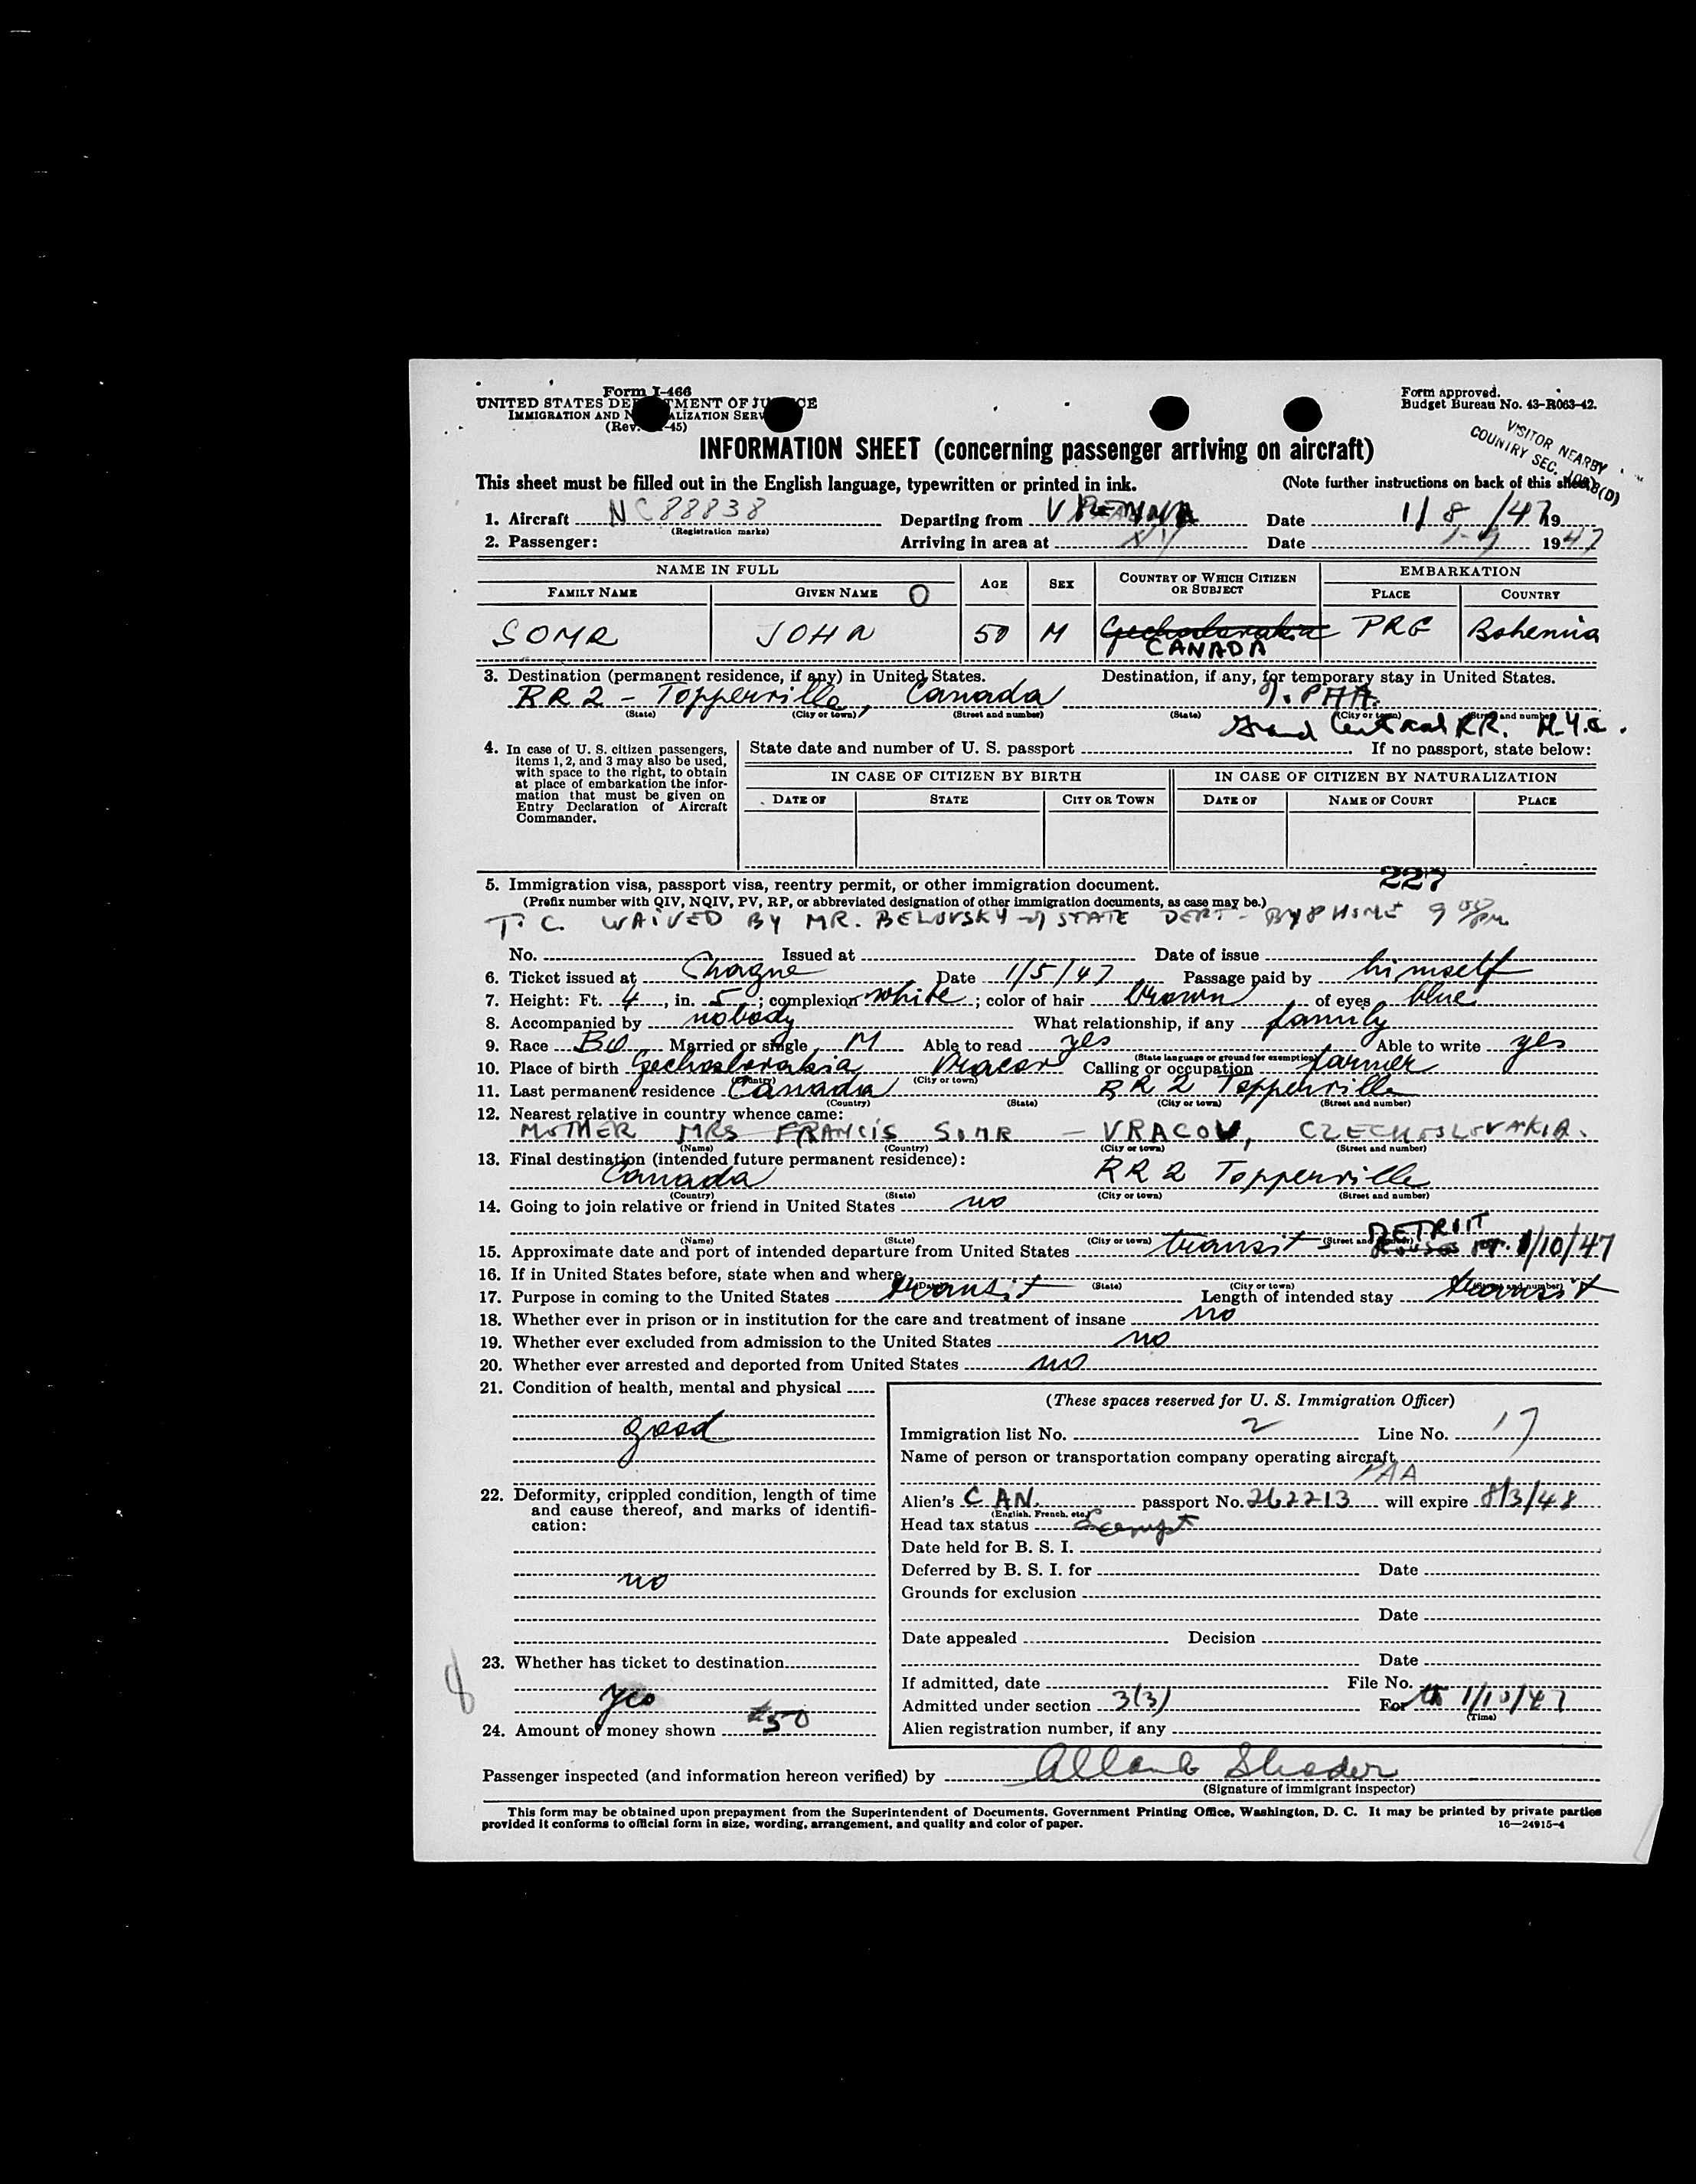 Form I-466
UNITED STATES DEPARTMENT OF JUSTICE
IMMIGRATION AND NATURALIZATION SERVICE
(Rev. -45)
Form approved.
Budget Bureau No. 43-R063-42.
VISITOR NEARBY
COUNTRY SEC.
INFORMATION SHEET (concerning passenger arriving on aircraft)
This sheet must be filled out in the English language, typewritten or printed in ink. (Note further instructions on back of this sheet)
1. Aircraft NC 88838 Departing from VIENNA Date 1/8/47 19
(Registration marks)
2. Passenger: Arriving in area at NY Date 1-9 1947
NAME IN FULL AGE SEX COUNTRY OF WHICH CITIZEN OR SUBJECT EMBARKATION
FAMILY NAME GIVEN NAME O PLACE COUNTRY
SOMR JOHN 50 M CANADA PRG Bohemia
3. Destination (permanent residence, if any) in United States. Destination, if any, for temporary stay in United States.
RR 2 - Toppenville, Canada
(State) (City or town) (Street and number) (State) (City or town) (Street and number)
Grand Central RR. N.Y.C.
4. In case of U. S. citizen passengers, items 1, 2, and 3 may also be used, with space to the right, to obtain at place of embarkation the information that must be given on Entry Declaration of Aircraft Commander.
State date and number of U. S. passport If no passport, state below:
IN CASE OF CITIZEN BY BIRTH IN CASE OF CITIZEN BY NATURALIZATION
DATE OF STATE CITY OR TOWN DATE OF NAME OF COURT PLACE
227
5. Immigration visa, passport visa, reentry permit, or other immigration document.
(Prefix number with QIV, NQIV, PV, RP, or abbreviated designation of other immigration documents, as case may be.)
T. C. WAIVED BY MR. BELOVSKY of STATE DEPT- BY PHONE 9 00 pm
No. Issued at Date of issue
6. Ticket issued at Date 1/5/47 Passage paid by himself
7. Height: Ft. 4, in. 5; complexion white; color of hair brown of eyes blue
8. Accompanied by nobody What relationship, if any family
9. Race Married or single M Able to read yes Able to write yes
(State language or ground for exemption)
10. Place of birth Gechoslovakia Vracov Calling or occupation farmer
(Country) (City or town)
11. Last permanent residence Canada RR 2 Toppenville
(Country) (State) (City or town) (Street and number)
12. Nearest relative in country whence came:
MOTHER MRS FRANCIS SOMR - VRACOV, CZECHOSLOVAKIA.
(Name) (Country) (City or town) (Street and number)
13. Final destination (intended future permanent residence):
Canada RR 2 Toppenville
(Country) (State) (City or town) (Street and number)
14. Going to join relative or friend in United States no
(Name) (State) (City or town) (Street and number)
15. Approximate date and port of intended departure from United States transit - DETROIT 1/10/47
16. If in United States before, state when and where
(Date) (State) (City or town) (Street and number)
17. Purpose in coming to the United States transit Length of intended stay transit
18. Whether ever in prison or in institution for the care and treatment of insane no
19. Whether ever excluded from admission to the United States no
20. Whether ever arrested and deported from United States no
21. Condition of health, mental and physical
good
22. Deformity, crippled condition, length of time and cause thereof, and marks of identification:
no
23. Whether has ticket to destination
yes
24. Amount of money shown $50
8
(These spaces reserved for U. S. Immigration Officer)
Immigration list No. 2 Line No. 17
Name of person or transportation company operating aircraft
PAA
Alien's CAN. passport No. 262213 will expire 8/3/48
(English, French, etc.)
Head tax status Exempt
Date held for B. S. I.
Deferred by B. S. I. for Date
Grounds for exclusion
Date
Date appealed Decision
Date
If admitted, date File No.
Admitted under section 3(3) For to 1/10/47
(Time)
Alien registration number, if any
Passenger inspected (and information hereon verified) by
(Signature of immigrant inspector)
This form may be obtained upon prepayment from the Superintendent of Documents, Government Printing Office, Washington, D. C. It may be printed by private parties
provided it conforms to official form in size, wording, arrangement, and quality and color of paper. 16—24915-4